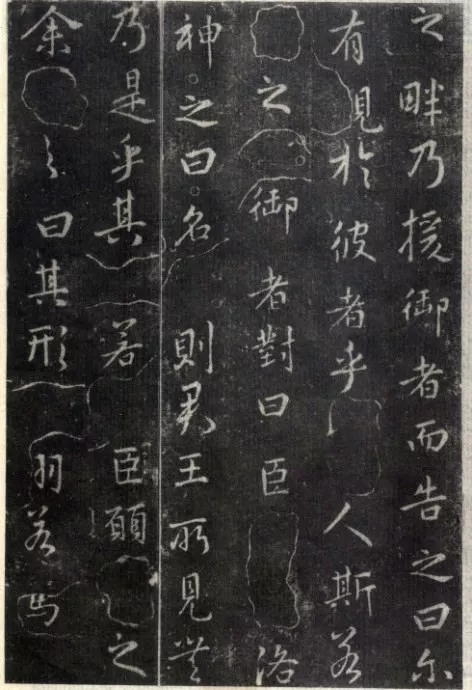 之畔乃援御者而告之曰尔
有見於彼者乎 人斯若
之 御者對曰臣 洛
神 之曰名 則君王所見無
乃是乎其 若 臣願 之
余 之曰其形 羽若 馬